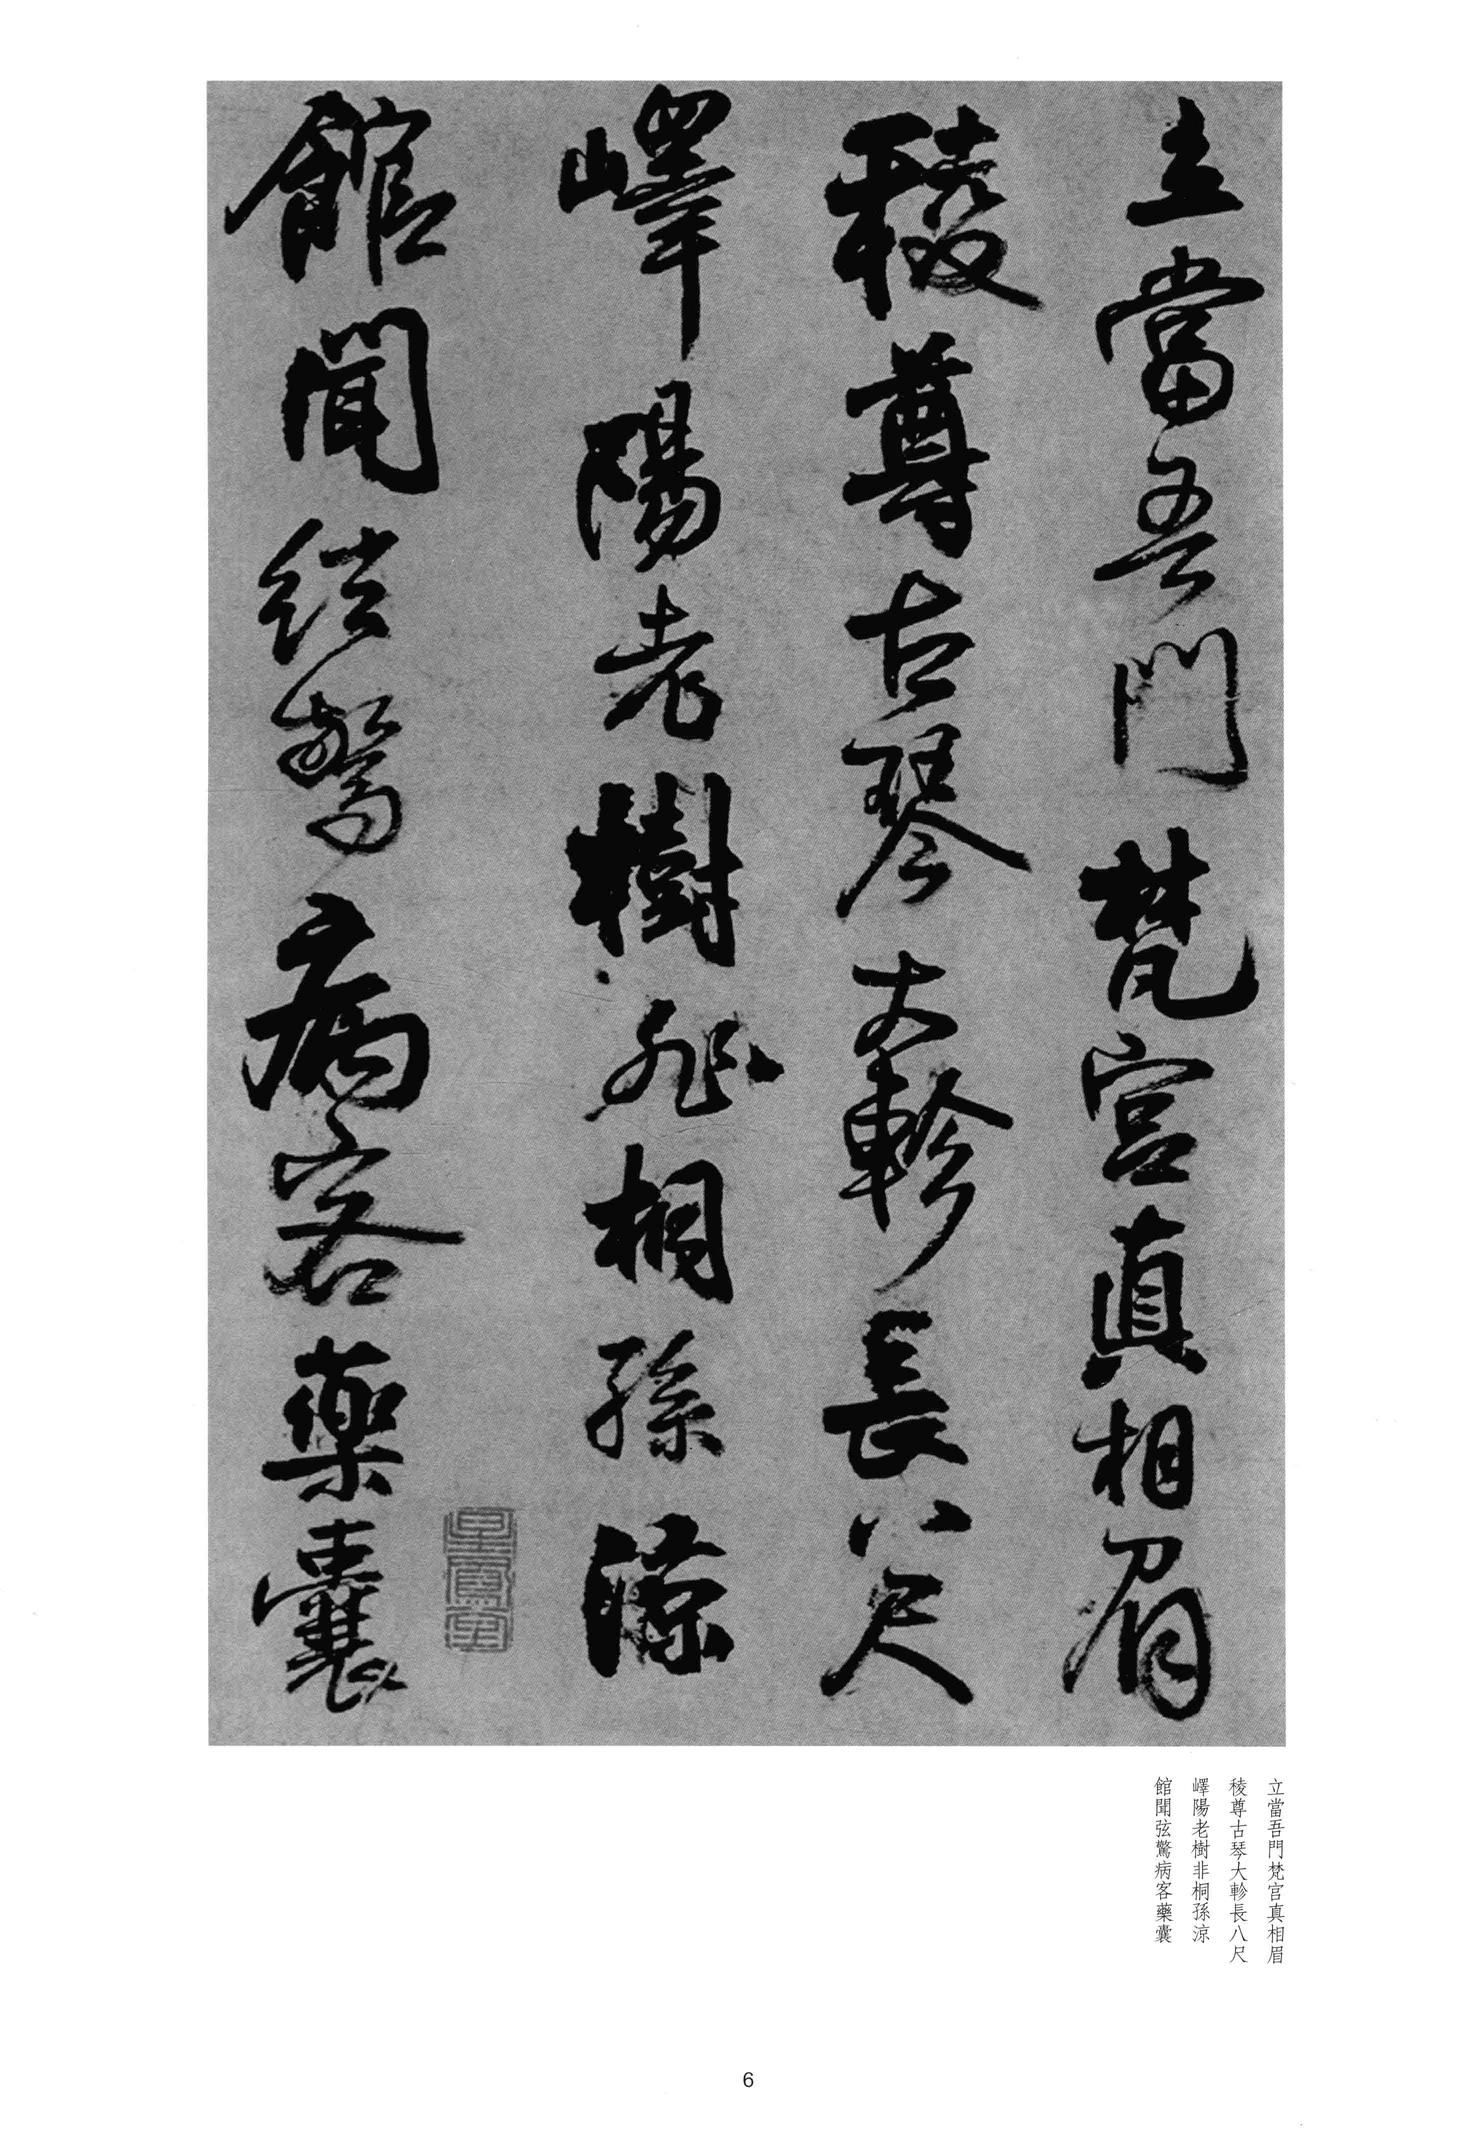 立當吾門梵宮真相眉
稜尊古琴大軫長八尺
嶧陽老樹非桐孫涼
館聞絃驚病客藥囊
立當吾門梵宮真相眉
稜尊古琴大軫長八尺
嶧陽老樹非桐孫涼
館聞弦驚病客藥囊
6